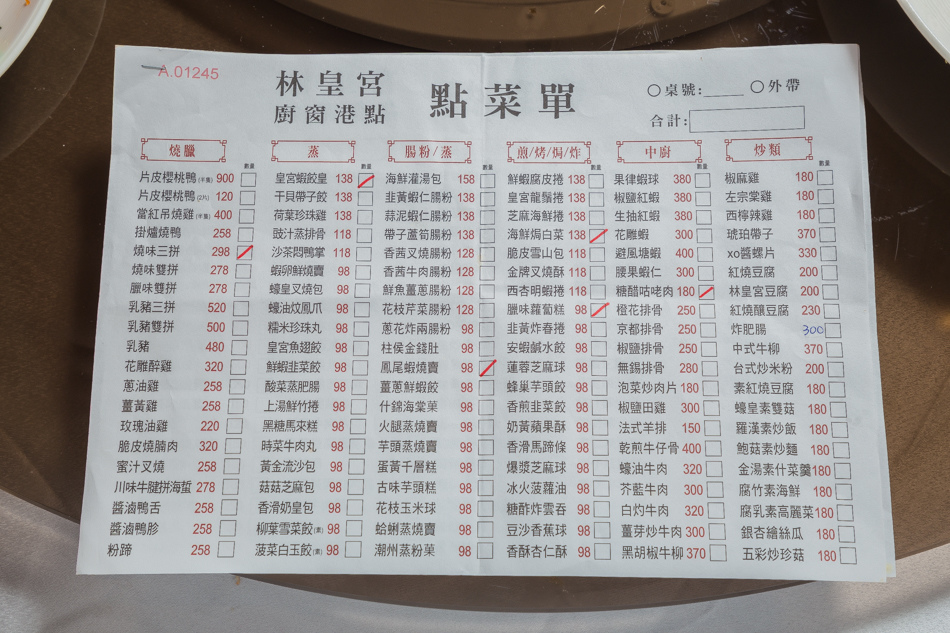 A.01245
林皇宮
廚窗港點
點菜單
桌號: 外帶
合計:
燒臘 數量
片皮櫻桃鴨(半隻) 900
片皮櫻桃鴨 120
當紅吊燒雞(半隻) 400
掛爐燒鴨 258
燒味三拼 298
燒味雙拼 278
臘味雙拼 278
乳豬三拼 520
乳豬雙拼 500
乳豬 480
花雕醉雞 320
蔥油雞 258
薑黃雞 258
玫瑰油雞 220
脆皮燒腩肉 320
蜜汁叉燒 258
川味牛腱拼海蜇 278
醬滷鴨舌 258
醬滷鴨胗 258
粉蹄 258
蒸 數量
皇宮蝦餃皇 138
干貝帶子餃 138
荷葉珍珠雞 138
豉汁蒸排骨 118
沙茶悶鴨掌 118
蝦卵鮮燒賣 98
蠔皇叉燒包 98
蠔油炆鳳爪 98
糯米珍珠丸 98
皇宮魚翅餃 98
鮮蝦韭菜餃 98
酸菜蒸肥腸 98
上湯鮮竹捲 98
黑糖馬來糕 98
時菜牛肉丸 98
黃金流沙包 98
菇菇芝麻包 98
香滑奶皇包 98
柳葉雪菜餃(素) 98
菠菜白玉餃(素) 98
腸粉/蒸 數量
海鮮灌湯包 158
韭黃蝦仁腸粉 138
蒜泥蝦仁腸粉 138
帶子蘆筍腸粉 138
香茜叉燒腸粉 128
香茜牛肉腸粉 128
鮮魚薑蔥腸粉 128
花枝芹菜腸粉 128
蔥花炸兩腸粉 98
柱侯金錢肚 98
鳳尾蝦燒賣 98
薑蔥鮮蝦餃 98
什錦海棠菓 98
火腿蒸燒賣 98
芋頭蒸燒賣 98
蛋黃千層糕 98
古味芋頭糕 98
花枝玉米球 98
蛤蜊蒸燒賣 98
潮州蒸粉菓 98
煎/烤/焗/炸 數量
鮮蝦腐皮捲 138
皇宮龍鬚捲 138
芝麻海鮮捲 138
海鮮焗白菜 138
脆皮雪山包 118
金牌叉燒酥 118
西杏明蝦捲 118
臘味蘿蔔糕 98
韭黃炸春捲 98
安蝦鹹水餃 98
蓮蓉芝麻球 98
蜂巢芋頭餃 98
香煎韭菜餃 98
奶黃蘋果酥 98
香滑馬蹄條 98
爆漿芝麻球 98
冰火菠蘿油 98
糖酢炸雲吞 98
豆沙香蕉球 98
香酥杏仁酥 98
中廚 數量
果律蝦球 380
椒鹽紅蝦 380
生抽紅蝦 380
花雕蝦 300
避風塘蝦 400
腰果蝦仁 300
糖醋咕咾肉 180
橙花排骨 250
京都排骨 250
椒鹽排骨 250
無錫排骨 280
泡菜炒肉片 180
椒鹽田雞 300
法式羊排 150
乾煎牛仔骨 400
蠔油牛肉 320
芥藍牛肉 300
白灼牛肉 320
薑芽炒牛肉 300
黑胡椒牛柳 370
炒類 數量
椒麻雞 180
左宗棠雞 180
西檸辣雞 180
琥珀帶子 370
xo醬螺片 330
紅燒豆腐 200
林皇宮豆腐 200
紅燒釀豆腐 230
炸肥腸 300
中式牛柳 370
台式炒米粉 200
素紅燒豆腐 180
蠔皇素雙菇 180
羅漢素炒飯 180
鮑菇素炒麵 180
金湯素什菜羹 180
腐竹素海鮮 180
腐乳素高麗菜 180
銀杏繪絲瓜 180
五彩炒珍菇 180